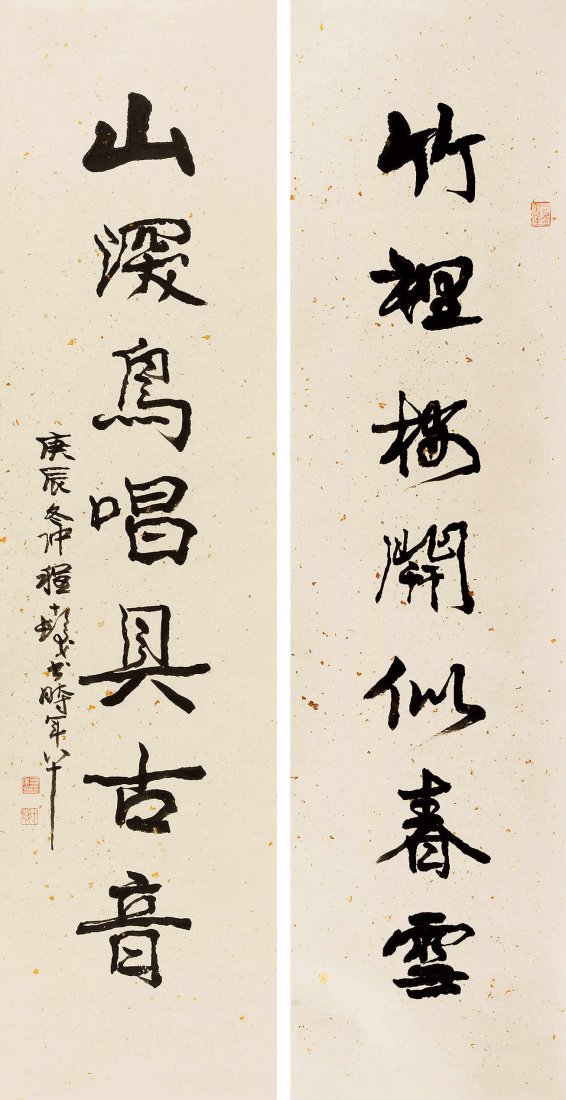 竹裡梅開似春雪
山深鳥唱具古音
庚辰冬仲程十髮書時年八十